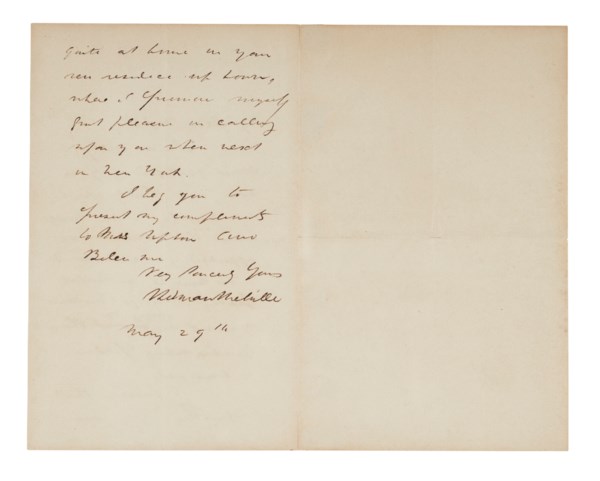 quite at home in your
new residence up town,
where I promise myself
great pleasure in calling
upon you when next
in New York.
I beg you to
present my compliments
to Upton and
Believe me
Very Sincerely Yours
Herman Melville
May 29th